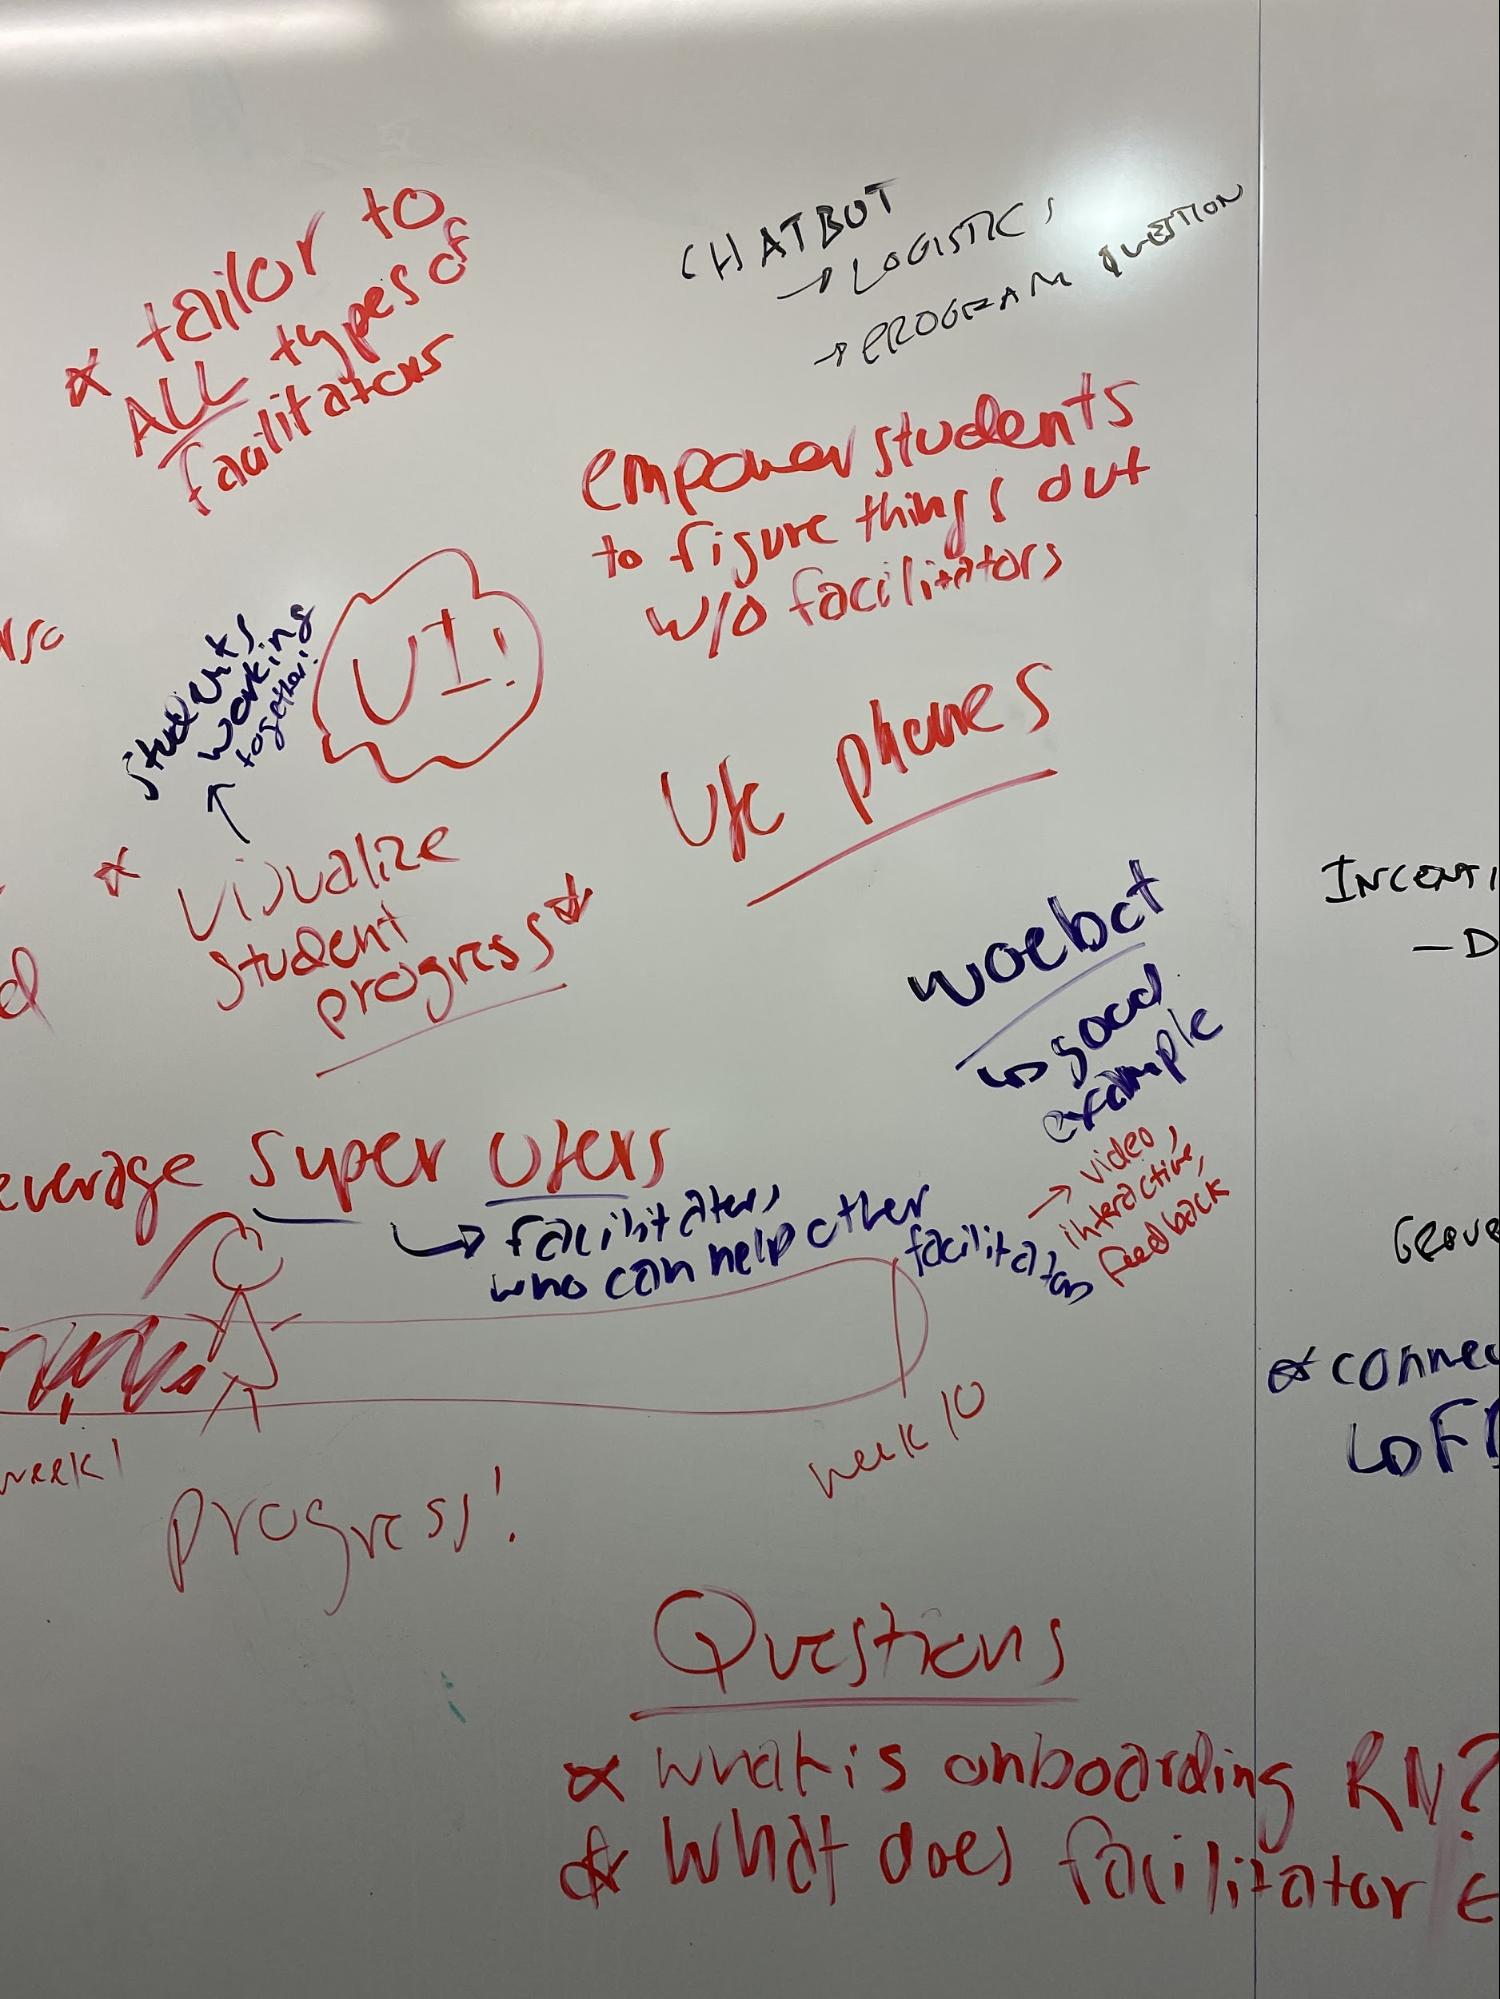 * tailor to
ALL types of
facilitators
CHATBOT
→ LOGISTICS
→ PROGRAM QUESTION
empower students
to figure things out
w/o facilitators
UI!
students
working
together!
Use phones
* visualize
student
progress*
woebot
↳ good
example
→ video,
interactive,
feedback
everage super users
↳ facilitators
who can help other
facilitators
week 1
week 10
progress!
INCENTI
- D
* connec
Questions
* what is onboarding RN?
* What does facilitator